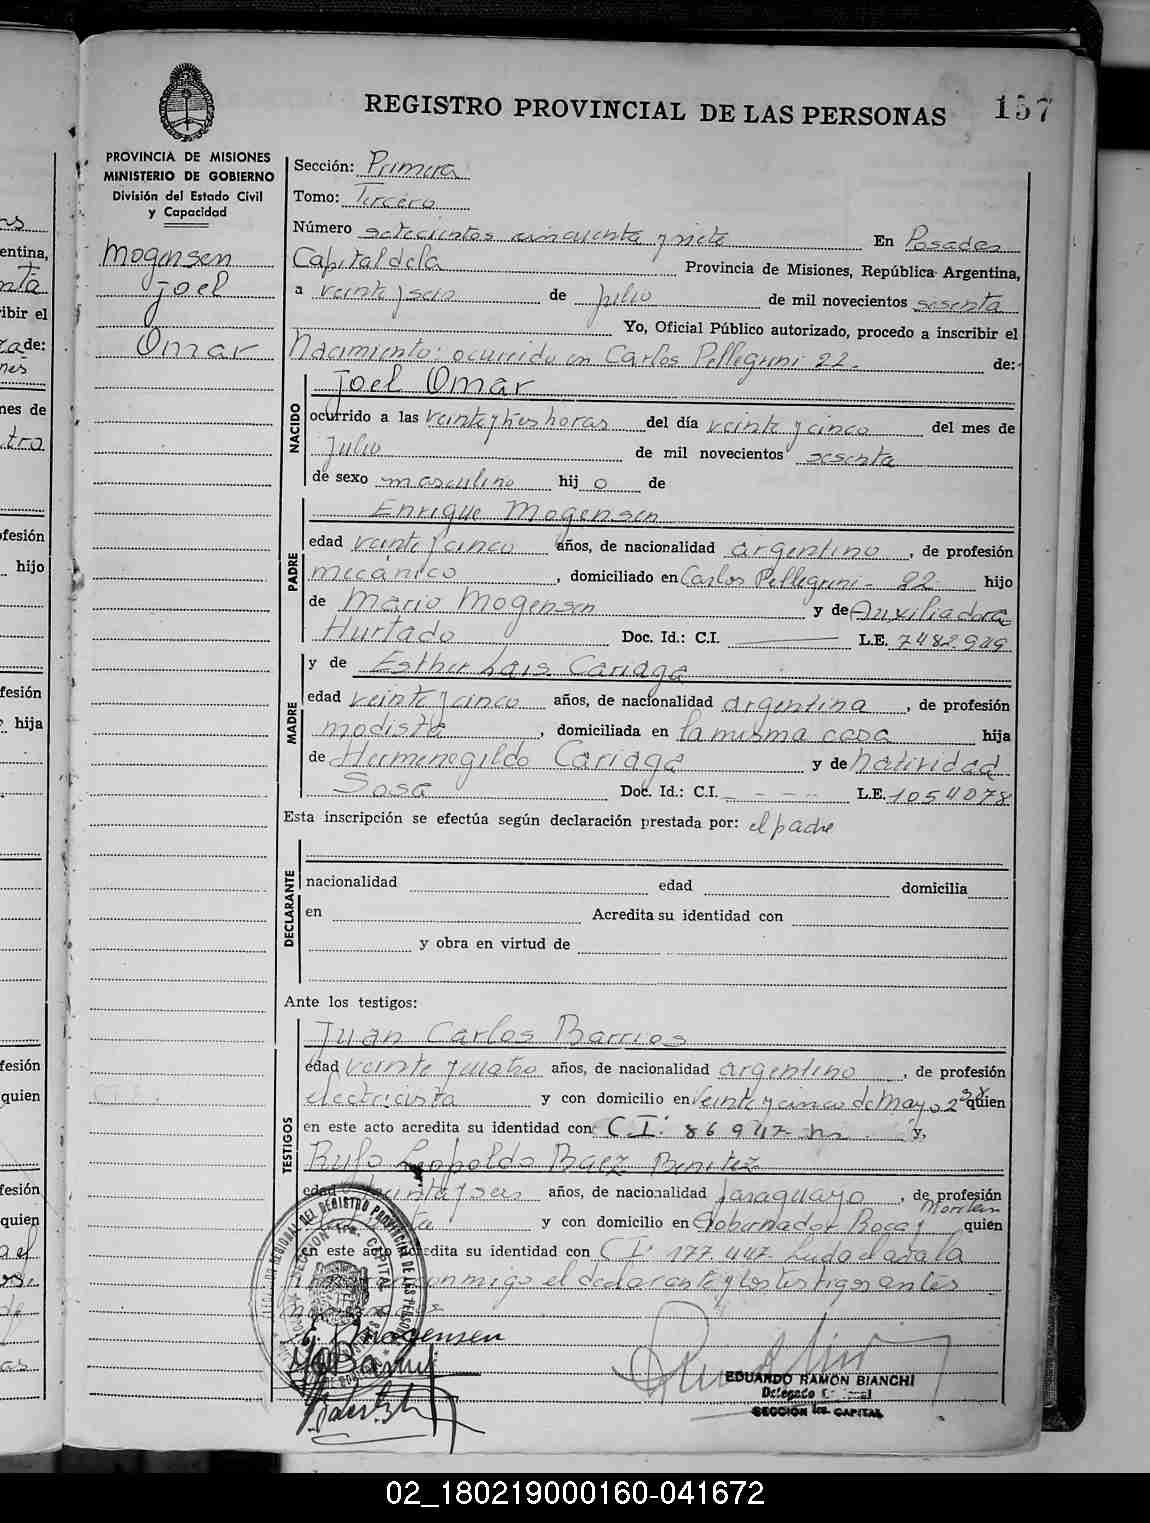 REGISTRO PROVINCIAL DE LAS PERSONAS 157
PROVINCIA DE MISIONES
MINISTERIO DE GOBIERNO
División del Estado Civil
y Capacidad
Mogensen
Joel
Omar
Sección: Primera
Tomo: Tercero
Número setecientos cincuenta y siete En Posadas
Capital de la Provincia de Misiones, República Argentina,
a veinte y seis de julio de mil novecientos sesenta
Yo, Oficial Público autorizado, procedo a inscribir el
Nacimiento: ocurrido en Carlos Pellegrini 22. de:
NACIDO
Joel Omar
ocurrido a las veinte y tres horas del día veinte y cinco del mes de
julio de mil novecientos sesenta
de sexo masculino hij o de
PADRE
Enrique Mogensen
edad veinte y cinco años, de nacionalidad argentino, de profesión
mecánico, domiciliado en Carlos Pellegrini - 22 hijo
de Mario Mogensen y de Auxiliadora
Hurtado Doc. Id.: C.I. L.E. 7482.949
MADRE
y de Esther Lais Cariaga
edad veinte y cinco años, de nacionalidad argentina, de profesión
modista, domiciliada en la misma casa hija
de Hermenegildo Cariaga y de natividad
Sosa Doc. Id.: C.I. - - - - L.E. 1054078
Esta inscripción se efectúa según declaración prestada por: el padre
DECLARANTE
nacionalidad edad domicilia
en Acredita su identidad con
y obra en virtud de
Ante los testigos:
TESTIGOS
Juan Carlos Barrios
edad veinte y cuatro años, de nacionalidad argentino, de profesión
electricista y con domicilio en Veinte y cinco de Mayo quien
en este acto acredita su identidad con C.I: 86947 y,
Rufo Leopoldo Baez Benitez
edad treinta y seis años, de nacionalidad paraguayo, de profesión
y con domicilio en Gobernador Roca y quien
en este acto acredita su identidad con C.I: 177.447. Leida el acta la
conmigo el declarante y los testigos antes
Mogensen
EDUARDO RAMON BIANCHI
Delegado
SECCION 1ra. CAPITAL
02_180219000160-041672